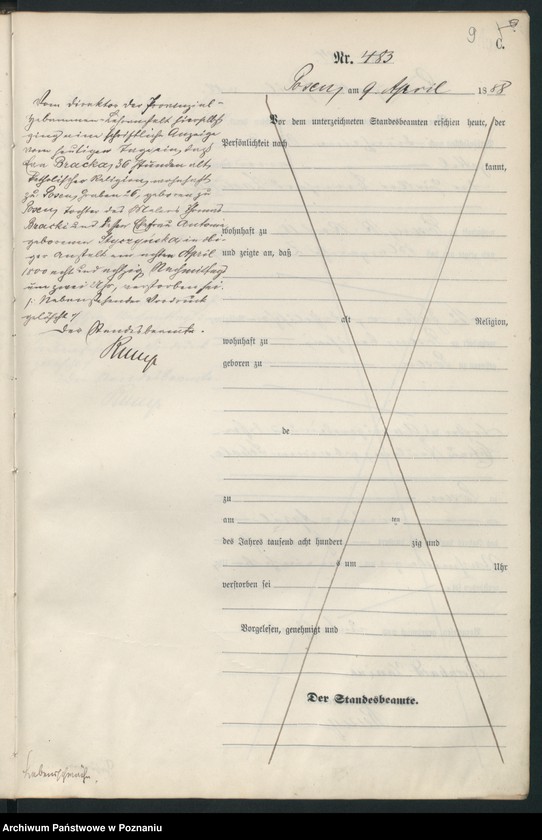 9
C.
Nr. 483
Posen, am 9 April 1888
Vor dem unterzeichneten Standesbeamten erschien heute, der
Persönlichkeit nach
kannt,
wohnhaft zu
und zeigte an, daß
alt Religion,
wohnhaft zu
geboren zu
de
zu
am ten
des Jahres tausend acht hundert zig und
s um Uhr
verstorben sei
Vorgelesen, genehmigt und
Der Standesbeamte.
Vom Direktor der Provinzial-
Hebammen-Lehranstalt hierselbst
ging eine schriftliche Anzeige
vom heutigen Tage ein, daß
Bracka, 36 Stunden alt,
katholischer Religion, wohnhaft
zu Posen, Graben 26, geboren zu
Posen, Tochter des Malers Thomas
Bracki und dessen Ehefrau Antonie
geborenen in die-
ser Anstalt am achten April
1800 acht und achtzig Nachmittags
um zwei Uhr, verstorben sei.
/: Nebenstehender Vordruck
gelöscht :/
Der Standesbeamte.
Lebensschwäche.
Archiwum Państwowe w Poznaniu